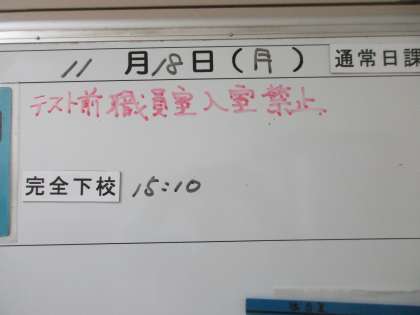 11月18日(月) 通常日課
テスト前職員室入室禁止
完全下校 15:10